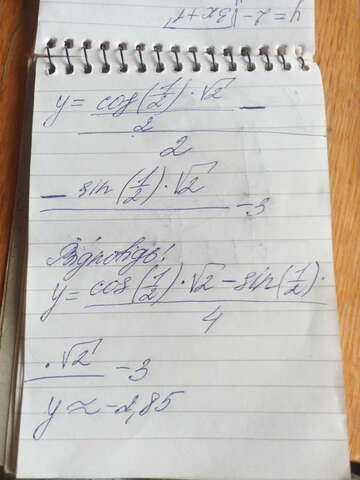 y = 2 - √3x+1
y = cos(1/2)·√2 -
2
2
- sin(1/2)·√2 - 3
Відповідь!
y = cos(1/2)·√2 - sin(1/2)·
4
·√2 - 3
y ≈ -2,85